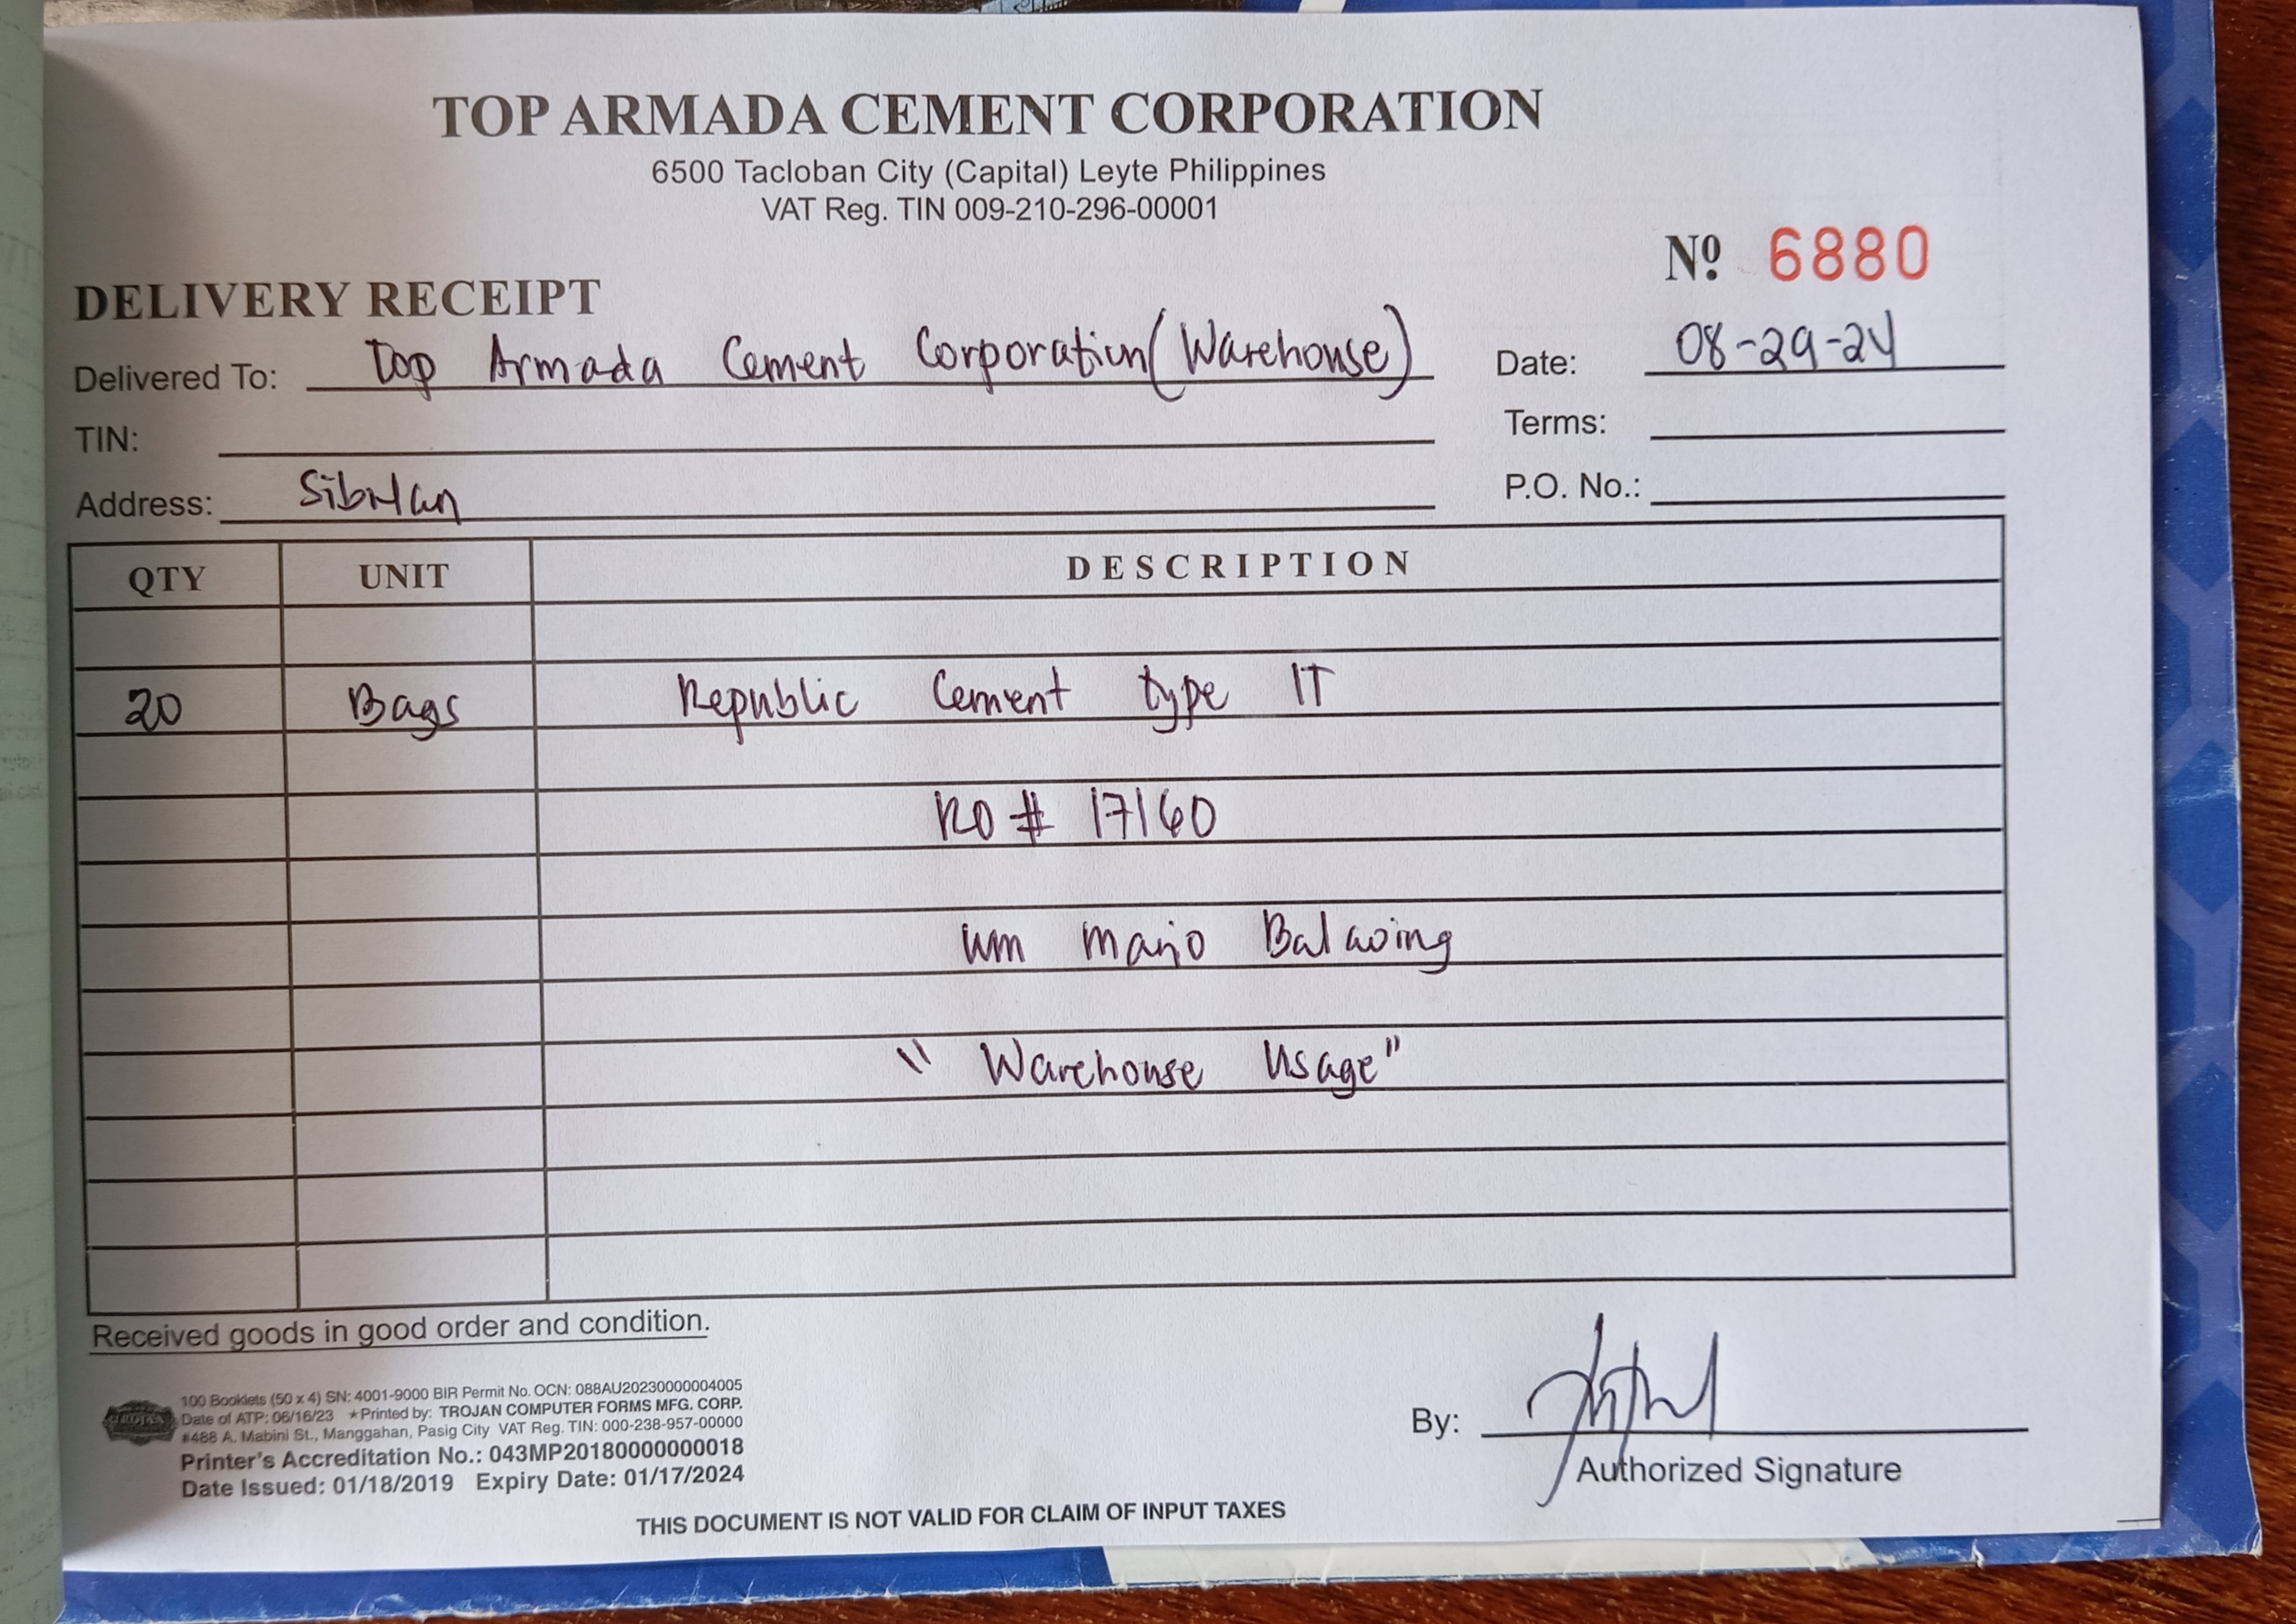 TOP ARMADA CEMENT CORPORATION
6500 Tacloban City (Capital) Leyte Philippines
VAT Reg. TIN 009-210-296-00001
Nº 6880
DELIVERY RECEIPT
Delivered To: Top Armada Cement Corporation (Warehouse)
Date: 08-29-24
TIN:
Terms:
Address:
P.O. No.:
QTY UNIT DESCRIPTION
20 Bags Republic Cement type IT
RO # 17160
Warehouse Usage"
Received goods in good order and condition.
TROJAN
100 Booklets (50 x 4) SN: 4001-9000 BIR Permit No. OCN: 088AU20230000004005
Date of ATP: 06/16/23 ★Printed by: TROJAN COMPUTER FORMS MFG. CORP.
#488 A. Mabini St., Manggahan, Pasig City VAT Reg. TIN: 000-238-957-00000
Printer's Accreditation No.: 043MP20180000000018
Date Issued: 01/18/2019 Expiry Date: 01/17/2024
By:
Authorized Signature
THIS DOCUMENT IS NOT VALID FOR CLAIM OF INPUT TAXES